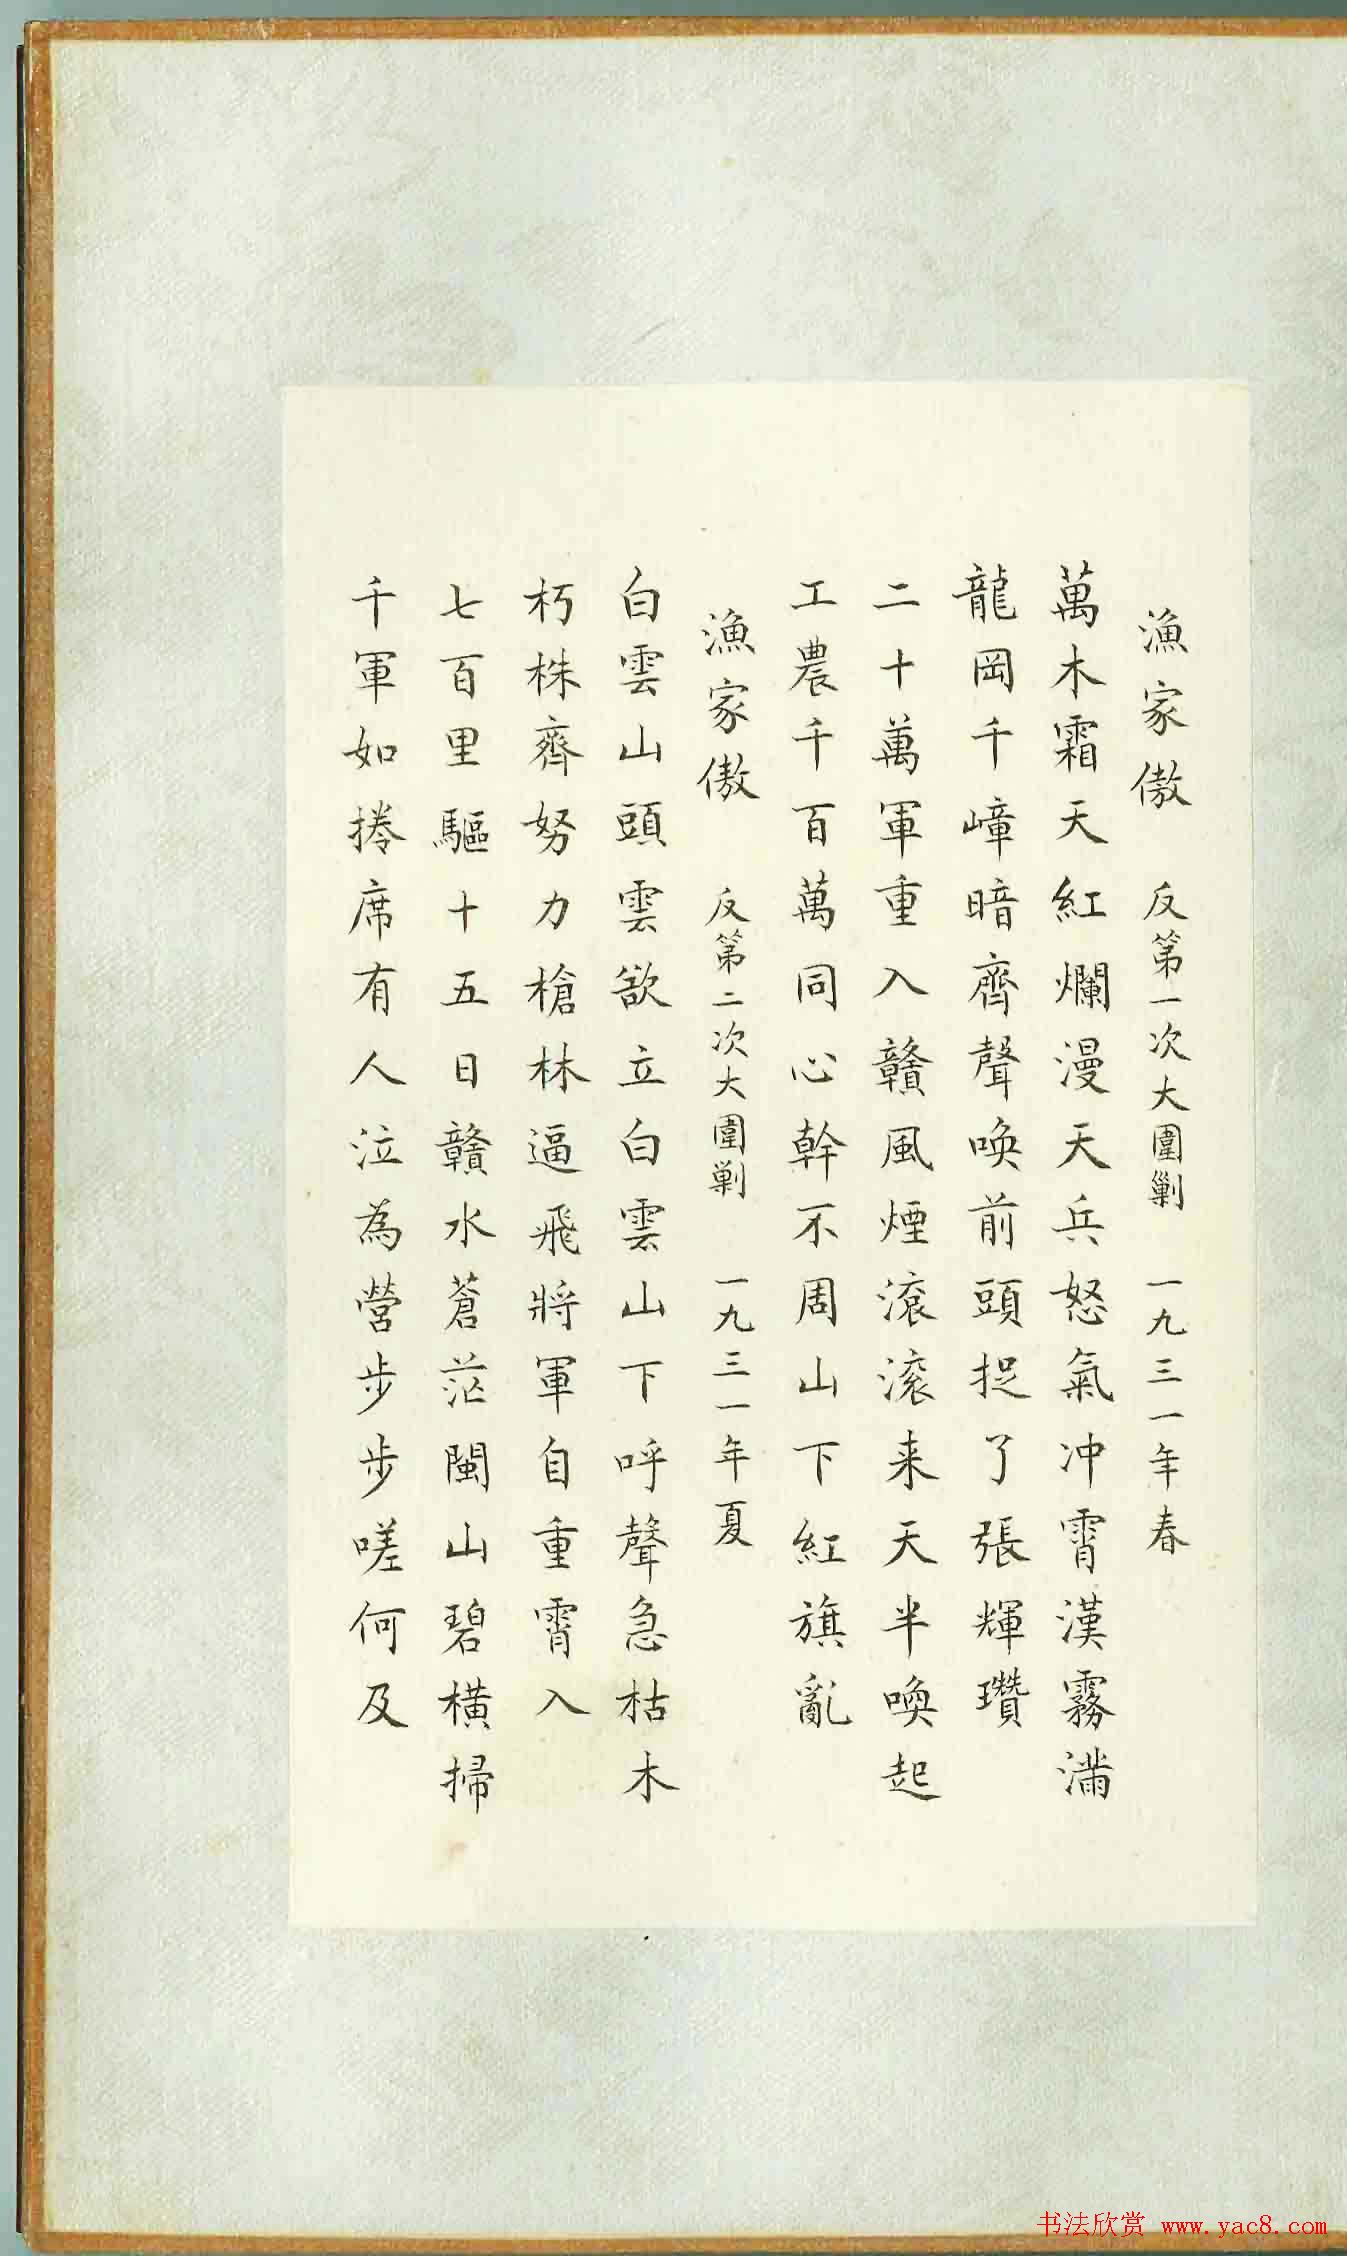 漁家傲 反第一次大圍剿 一九三一年春
萬木霜天紅爛漫天兵怒氣沖霄漢霧滿
龍岡千嶂暗齊聲唤前頭捉了張輝瓚
二十萬軍重入贛風煙滾滾来天半唤起
工農千百萬同心幹不周山下紅旗亂
漁家傲 反第二次大圍剿 一九三一年夏
白雲山頭雲欲立白雲山下呼聲急枯木
朽株齊努力槍林逼飛將軍自重霄入
七百里驅十五日贛水蒼茫閩山碧橫掃
千軍如捲席有人泣為營步步嗟何及
书法欣赏 www.yac8.com